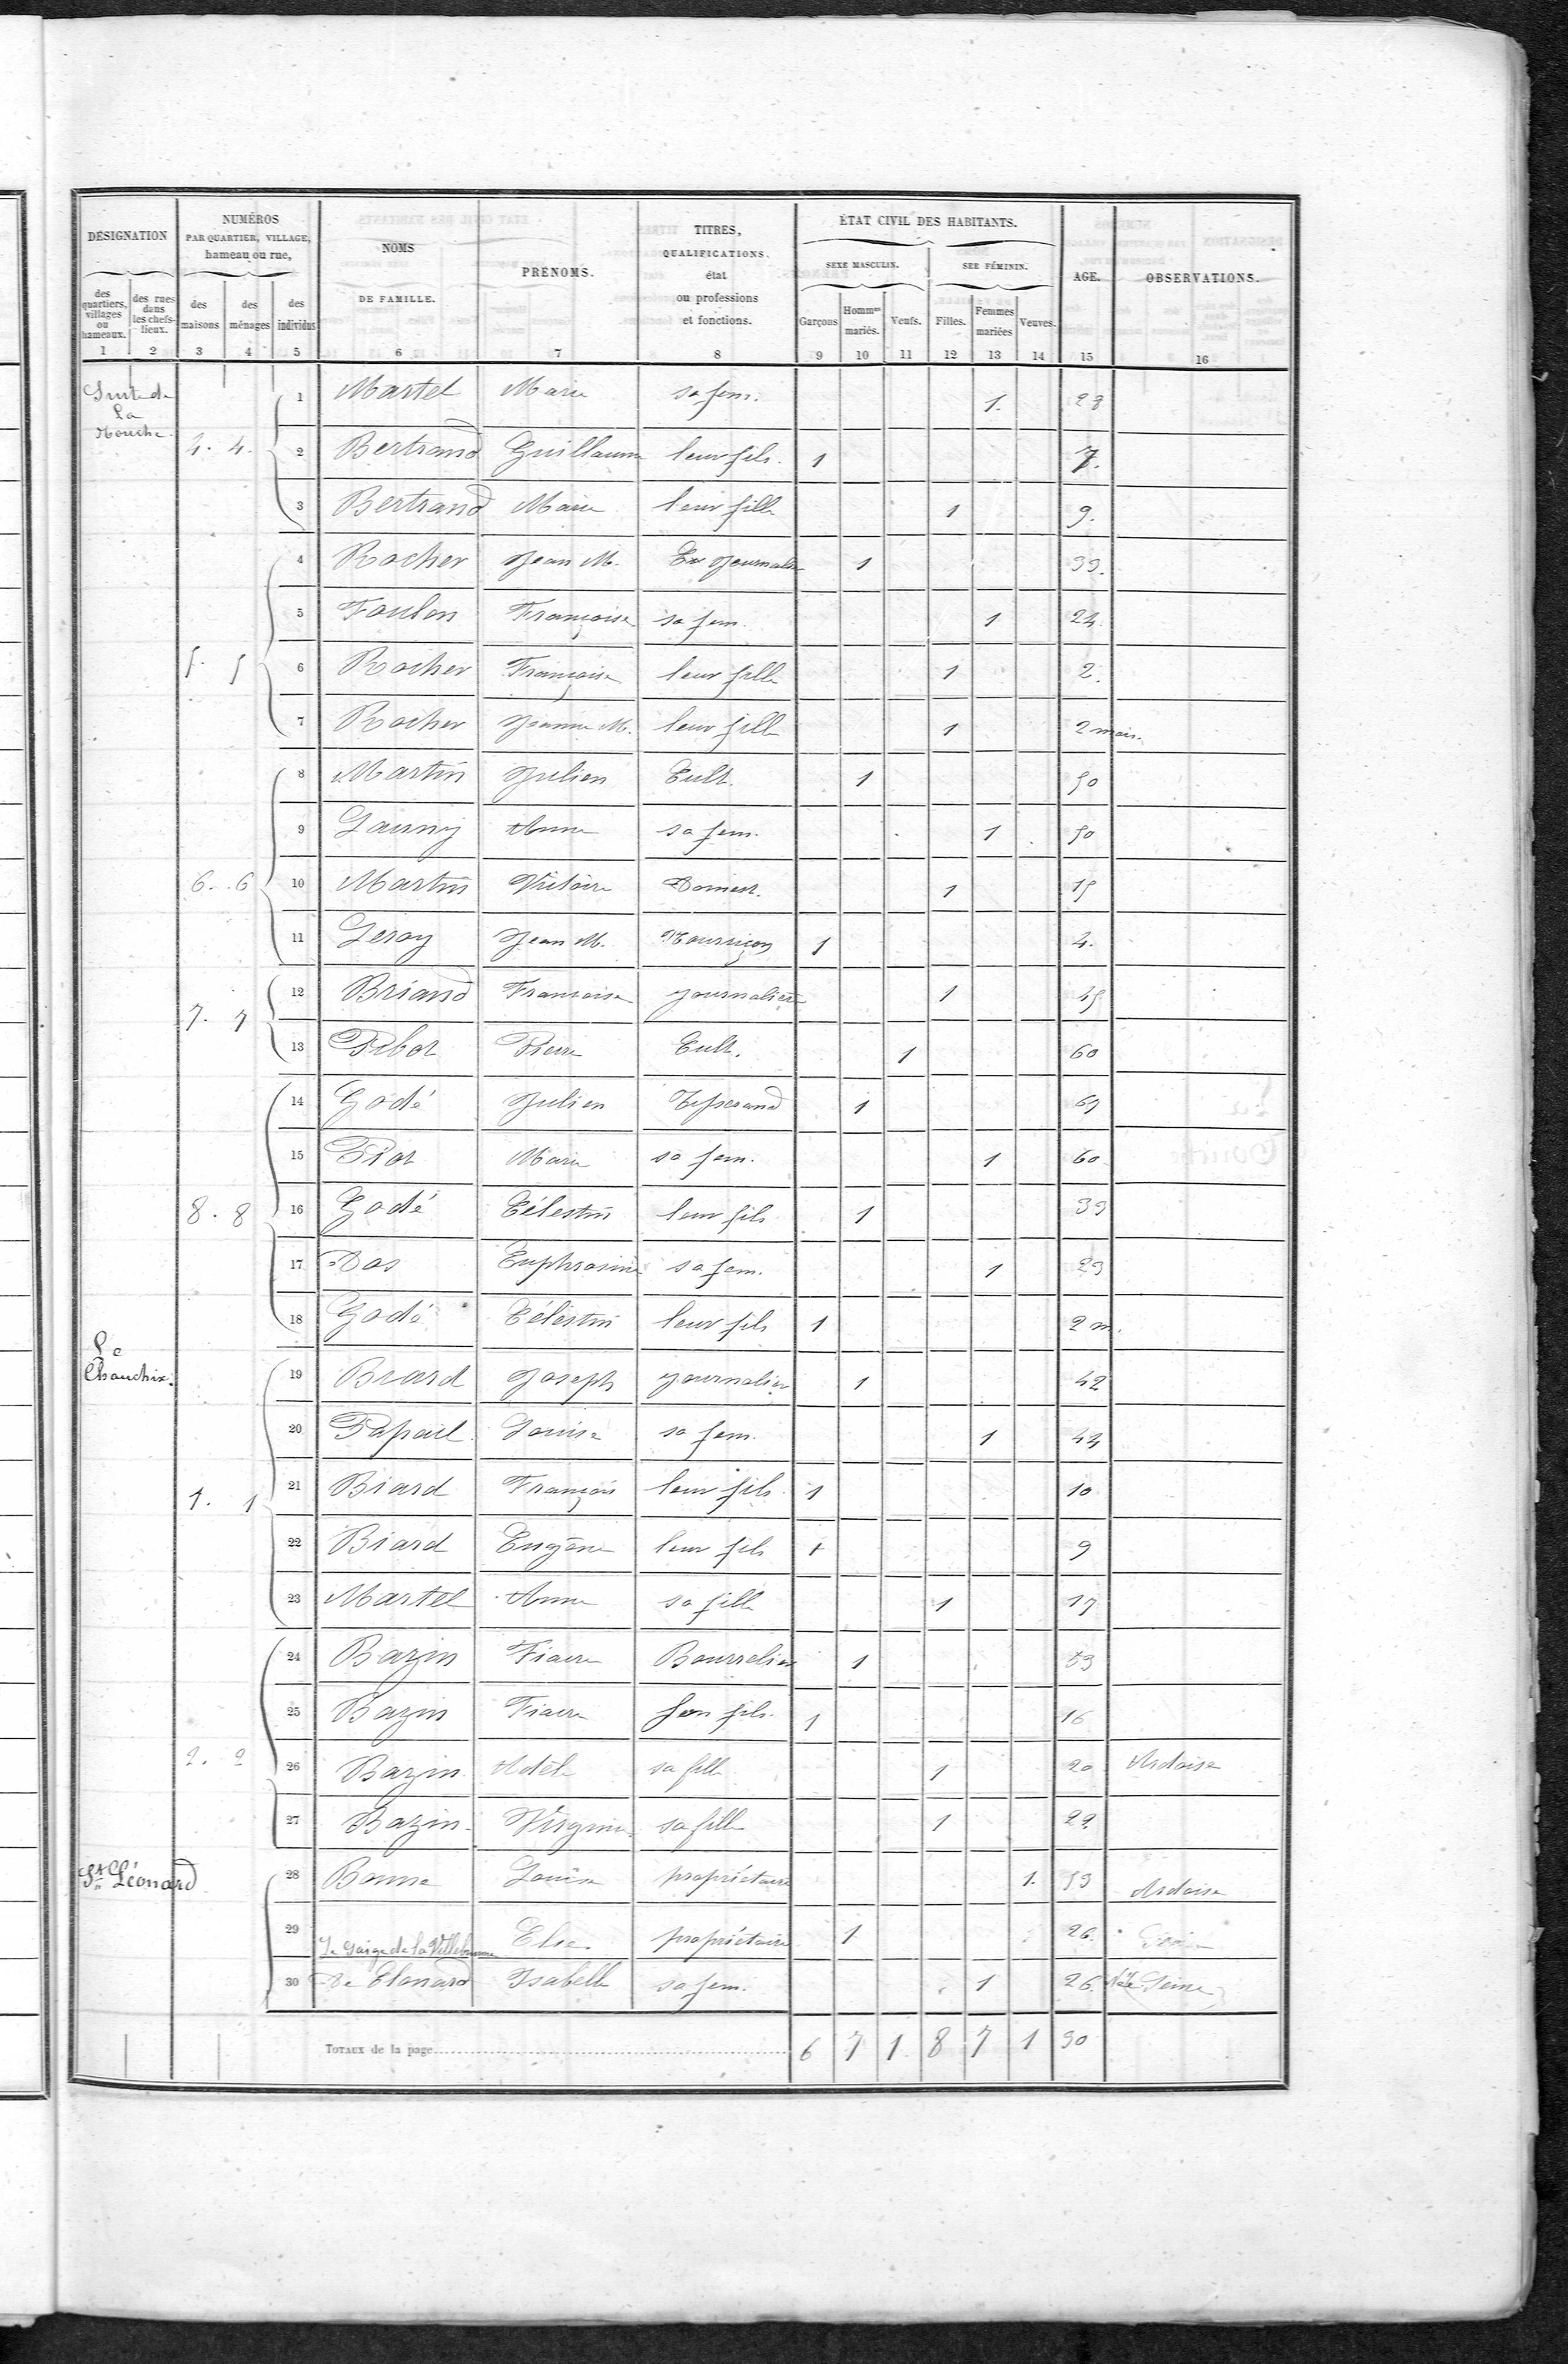 DÉSIGNATION
NUMÉROS
PAR QUARTIER, VILLAGE,
hameau ou rue,
NOMS
DE FAMILLE.
PRÉNOMS.
TITRES,
QUALIFICATIONS,
état
ou professions
et fonctions.
ÉTAT CIVIL DES HABITANTS.
SEXE MASCULIN. SEE FÉMININ.
AGE.
OBSERVATIONS.
des quartiers, villages ou hameaux.
des rues dans les chefs-lieux.
des maisons
des ménages
des individus
Garçons Homm^es mariés. Veufs. Filles. Femmes mariées Veuves.
1 2 3 4 5 6 7 8 9 10 11 12 13 14 15 16
Suite de
La
1 Martel Marie sa fem. 1. 28
4. 4. 2 Bertrand Guillaume leur fils. 1 7.
3 Bertrand Marie leur fille 1 9.
4 Rocher Jean M. 1 33.
5 Foulon Françoise sa fem. 1 24.
5. 5 6 Rocher Françoise leur fille 1 2.
7 Rocher Jeanne M. leur fille 1 2 mois.
8 Martin Julien Cult. 1 50
9 Launay Anne sa fem. 1 50
6. 6 10 Martin Victoire Domest. 1 15
11 Leroy Jean M. Nourriçon 1 4.
7. 7 12 Briand Françoise journalière 1 45
13 Pierre Cult. 1 60
14 Godé Julien Tisserand 1 69
15 Piot Marie sa fem. 1 60
8. 8 16 Godé Célestin leur fils 1 39
17 Das Euphrosine sa fem. 1 29
18 Godé Célestin leur fils 1 2 m.
Le
Chauchix.
19 Biard Joseph journalier 1 42
20 Papail Louise sa fem. 1 44
1. 1 21 Biard François leur fils. 1 10
22 Biard Eugène leur fils 1 9
23 Martel Anne sa fille 1 17
24 Bazin Fiacre Bourrelier 1 53
25 Bazin Fiacre son fils. 1 16
2. 2 26 Bazin Adèle sa fille 1 20 Ardoise
27 Bazin Virginie sa fille 1 22
St Léonard
28 Bonne Louise propriétaire 1. 53 Ardoise
29 propriétaire 1 26.
30 Isabelle sa fem. 1 26. Seine
TOTAUX de la page 6 7 1 8 7 1 30